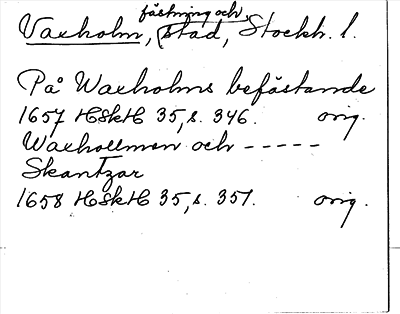 fästning och
Vaxholm, stad, Stockh. l.
På Waxholms befästande
1657 HSkH 35, s. 346. orig.
Waxhollmen och -----
Skantzar
1658 HSkH 35, s. 351. orig.